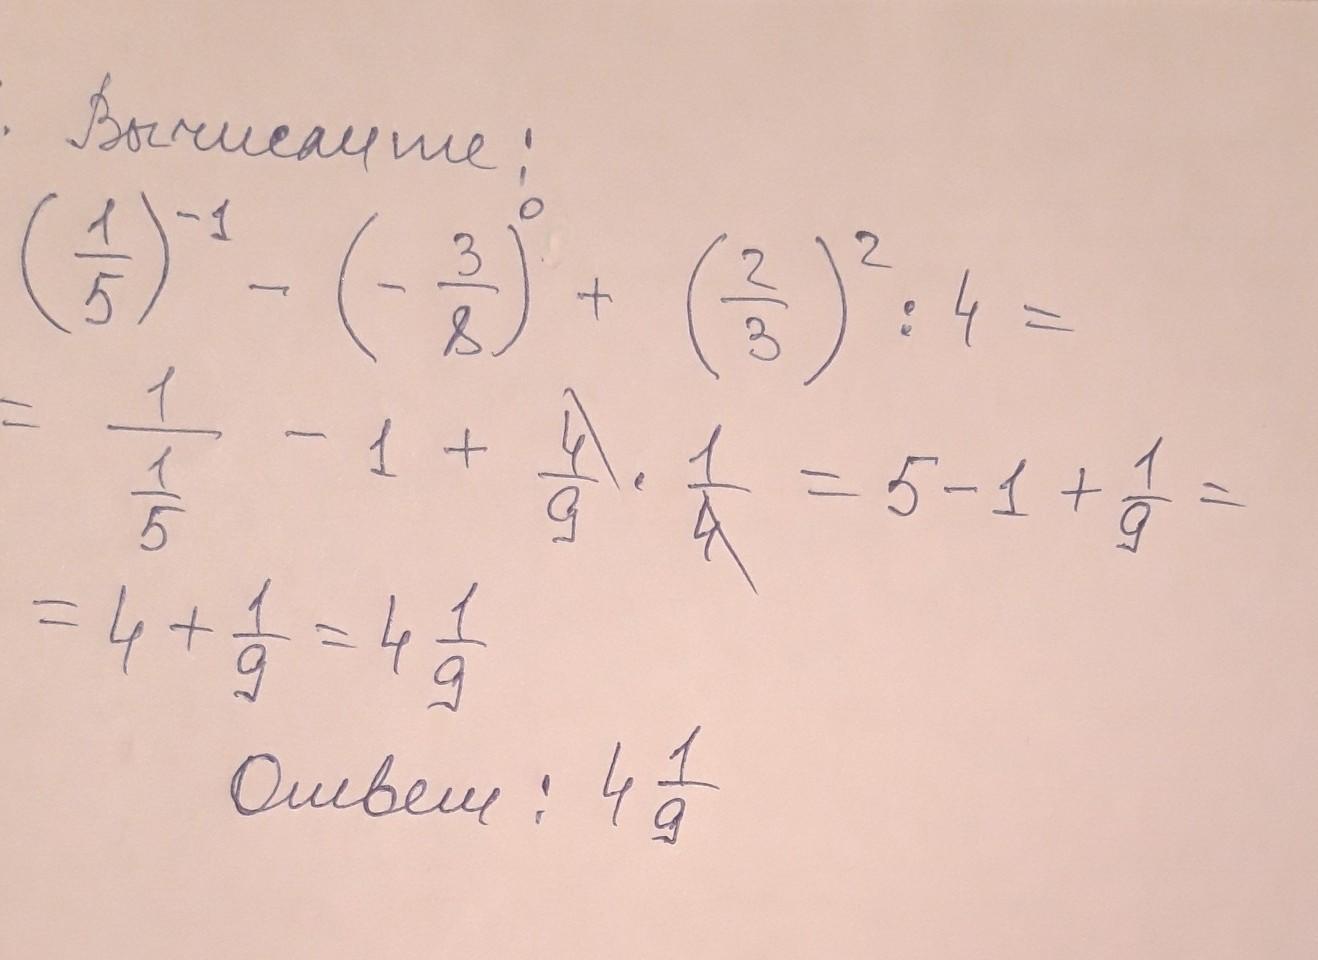 . Вычислите:
(1/5)^-1 - (-3/8)^0 + (2/3)^2 : 4 =
= 1/(1/5) - 1 + 4/9 · 1/4 = 5 - 1 + 1/9 =
= 4 + 1/9 = 4 1/9
Ответ: 4 1/9